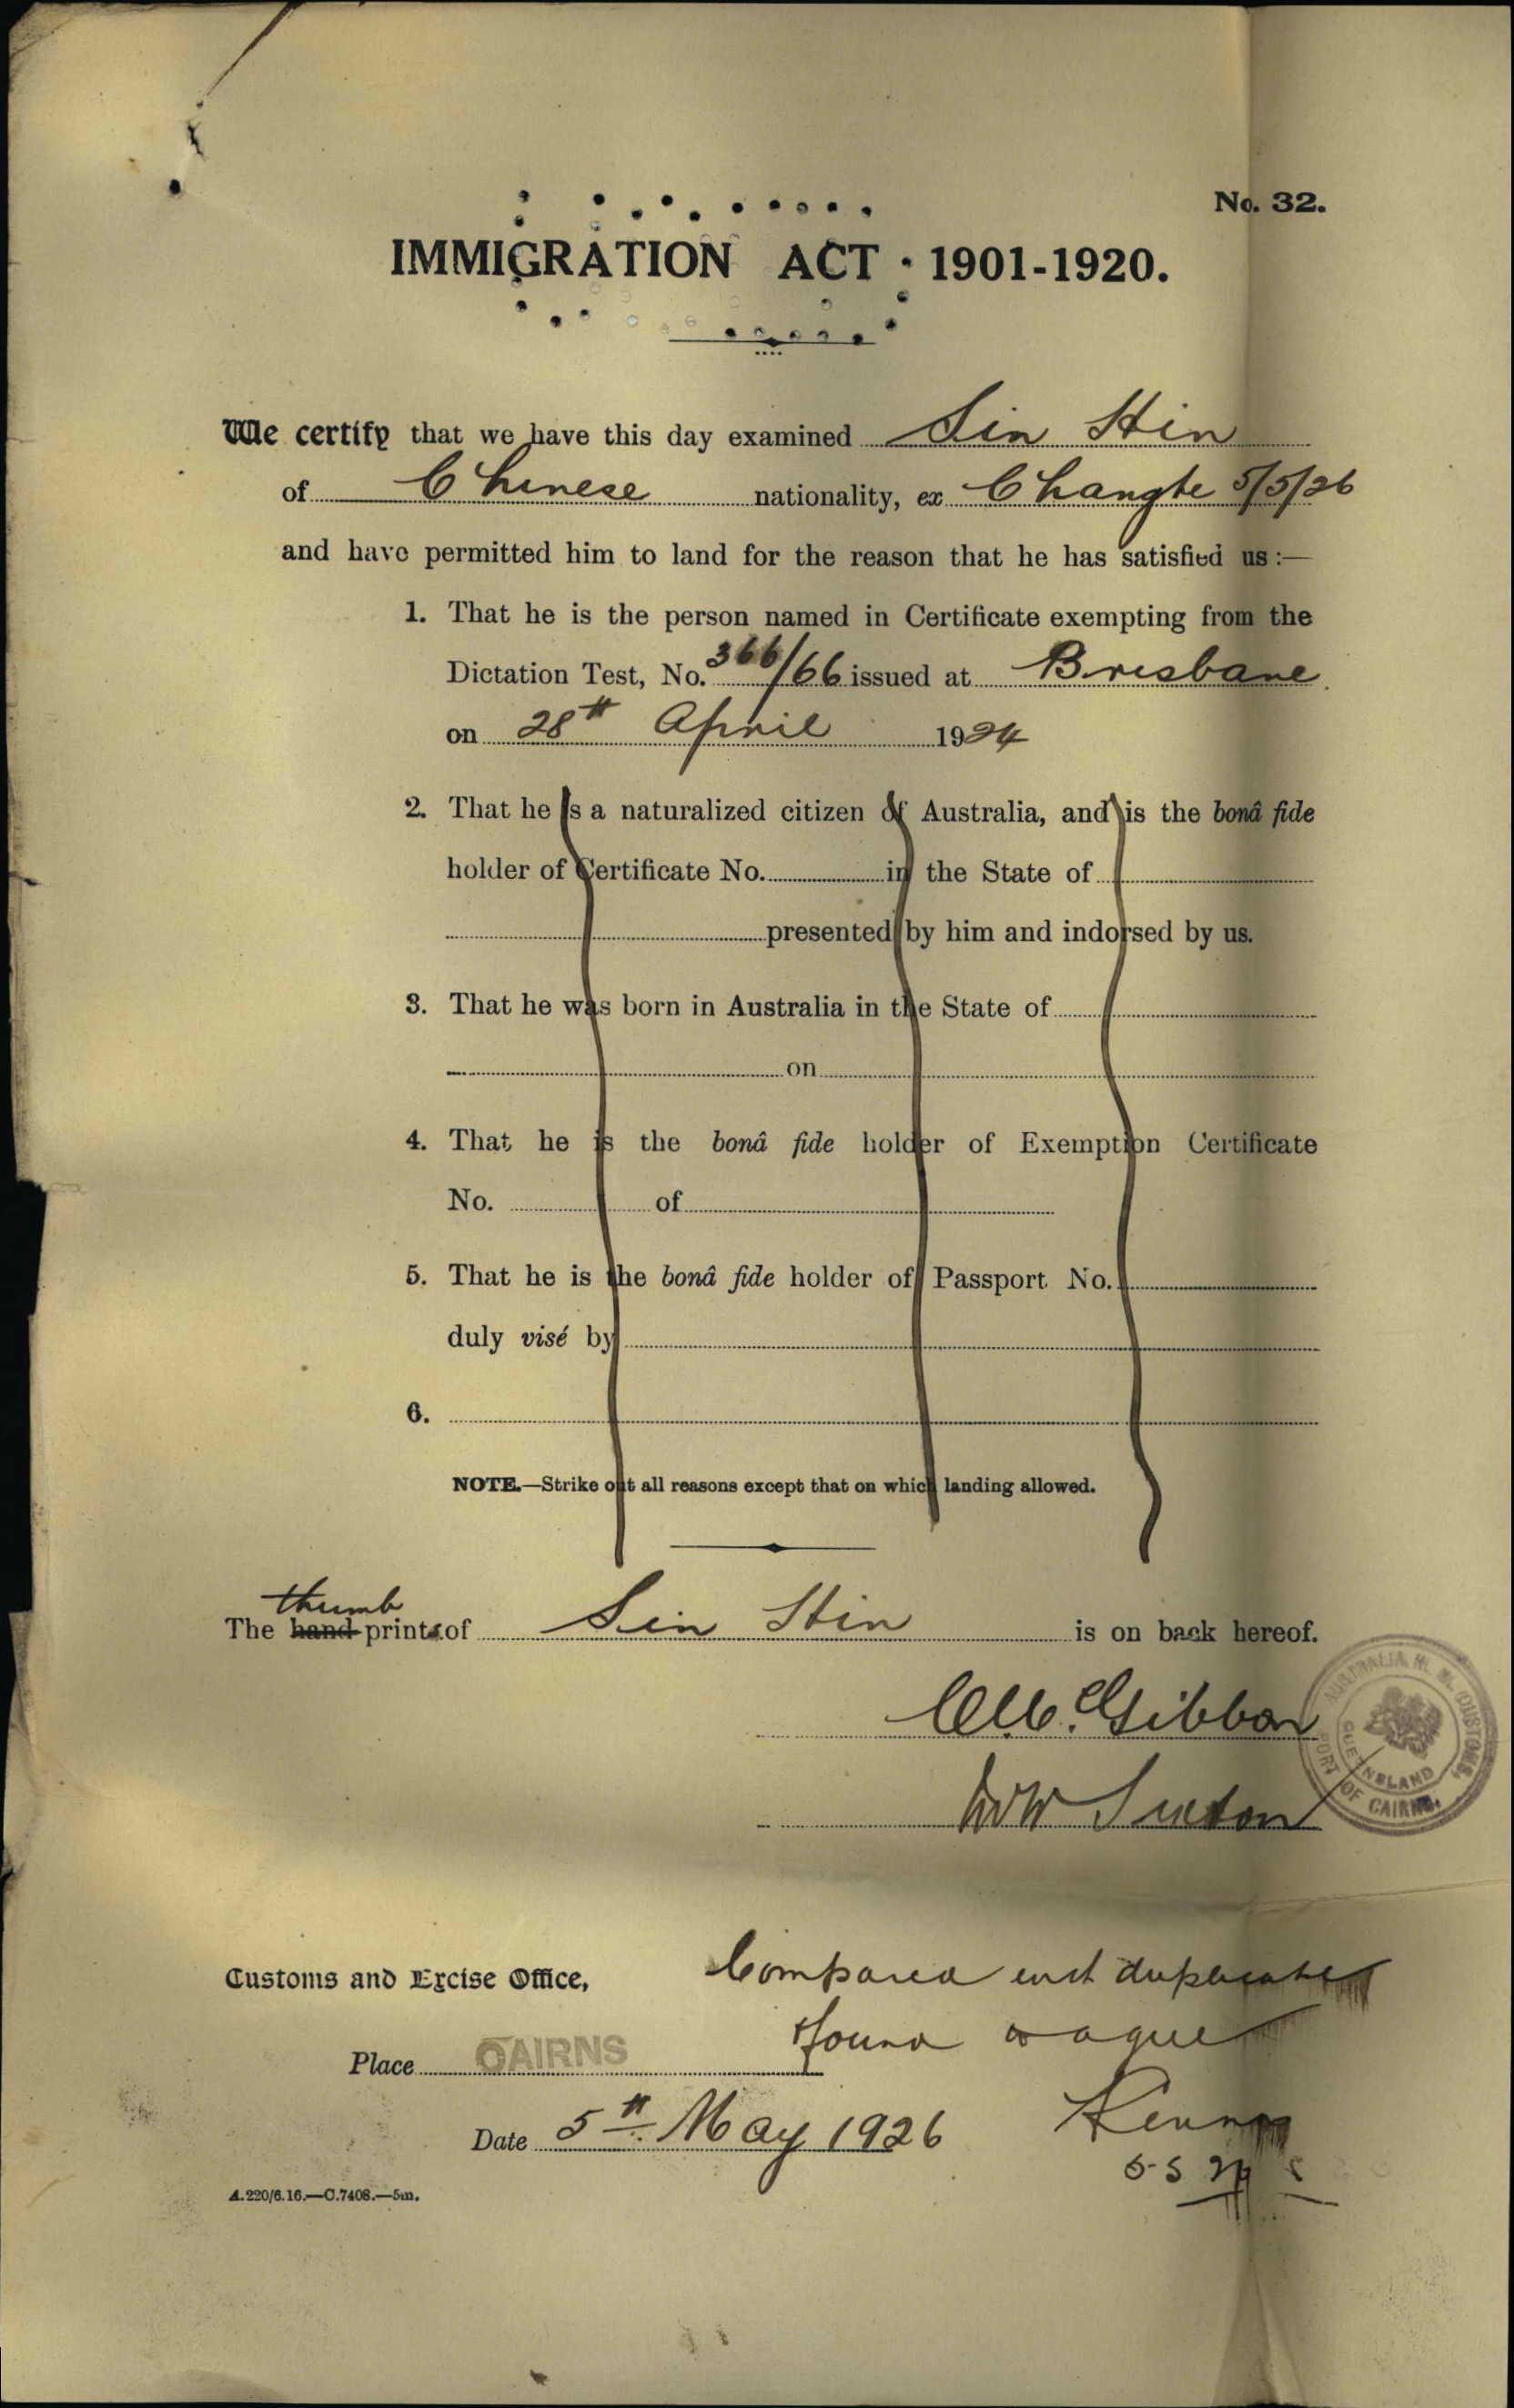 No. 32.
IMMIGRATION ACT · 1901-1920.
We certify that we have this day examined Sin Hin
of Chinese nationality, ex Changte 5/5/26
and have permitted him to land for the reason that he has satisfied us :—
1. That he is the person named in Certificate exempting from the
Dictation Test, No. 366/66 issued at Brisbane
on 28th April 1924
2. That he is a naturalized citizen of Australia, and is the bonâ fide
holder of Certificate No. in the State of
presented by him and indorsed by us.
3. That he was born in Australia in the State of
on
4. That he is the bonâ fide holder of Exemption Certificate
No. of
5. That he is the bonâ fide holder of Passport No.
duly visé by
6.
NOTE.—Strike out all reasons except that on which landing allowed.
thumb
The hand prints of Sin Hin is on back hereof.
Gibbon
AUSTRALIA H. M. CUSTOMS
QUEENSLAND
PORT OF CAIRNS
Customs and Excise Office,
Compared duplicate
found
Place CAIRNS
Date 5th May 1926
A.220/6.16.—C.7408.—5m.